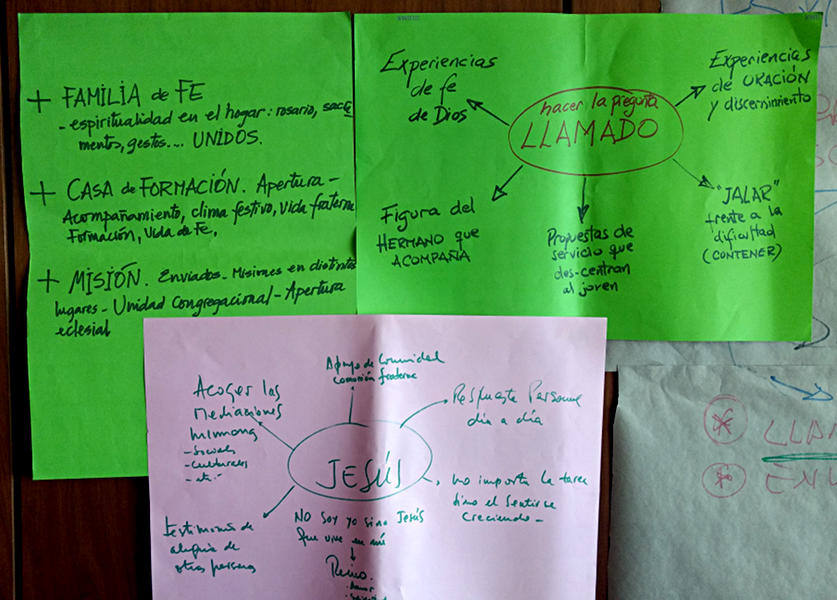 + FAMILIA de FE
- espiritualidad en el hogar: rosario, sacra
mentos, gestos... UNIDOS.
+ CASA de FORMACIÓN. Apertura -
Acompañamiento, clima festivo, vida fraterna
Formación, Vida de Fe,
+ MISIÓN. Enviados - Misiones en distintos
lugares - Unidad Congregacional - Apertura
eclesial
hacer la pregunta
LLAMADO
Experiencias
de fe
de Dios
Experiencias
de ORACIÓN
y discernimiento
Figura del
HERMANO que
ACOMPAÑA
Propuestas de
servicio que
des-centran
al joven
"JALAR"
frente a la
dificultad
(CONTENER)
JESÚS
Apoyo de Comunidad
comunión fraterna
Acoger las
mediaciones
humanas
- sociales
- culturales
- etc.
Respuesta Personal
día a día
no importa la tarea
sino el sentirse
creciendo -
testimonio de
alegría de
otras personas
NO soy yo sino Jesús
que vive en mí
Reino.
LLA